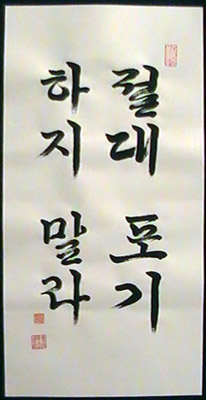 절대 포기
하지 말라